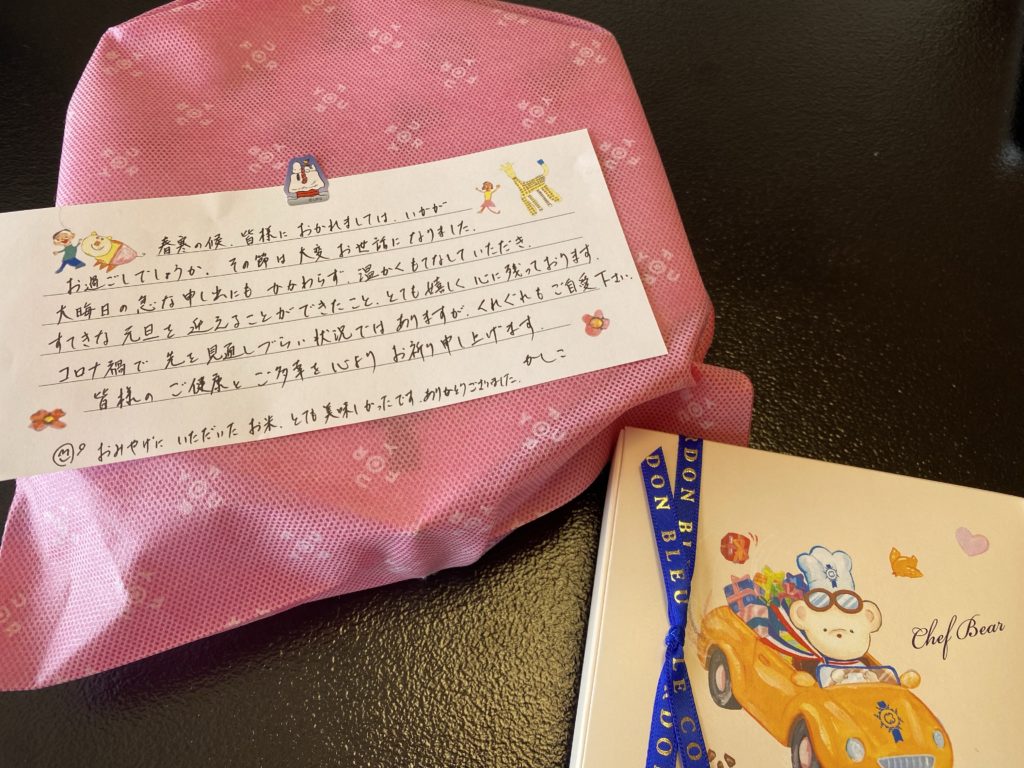 春寒の候、皆様におかれましては、いかが
お過ごしでしょうか。その節は大変お世話になりました。
大晦日の急な申し出にもかかわらず、温かくもてなしていただき、
すてきな元旦を迎えることができたこと、とても嬉しく心に残っております。
コロナ禍で先を見通しづらい状況ではありますが、くれぐれもご自愛下さい。
皆様のご健康とご多幸を心よりお祈り申し上げます。
かしこ
おみやげにいただいたお米、とても美味しかったです。ありがとうございました。
FOR YOU
DON BLEU LE CO
RDON BL
DO
Chef Bear